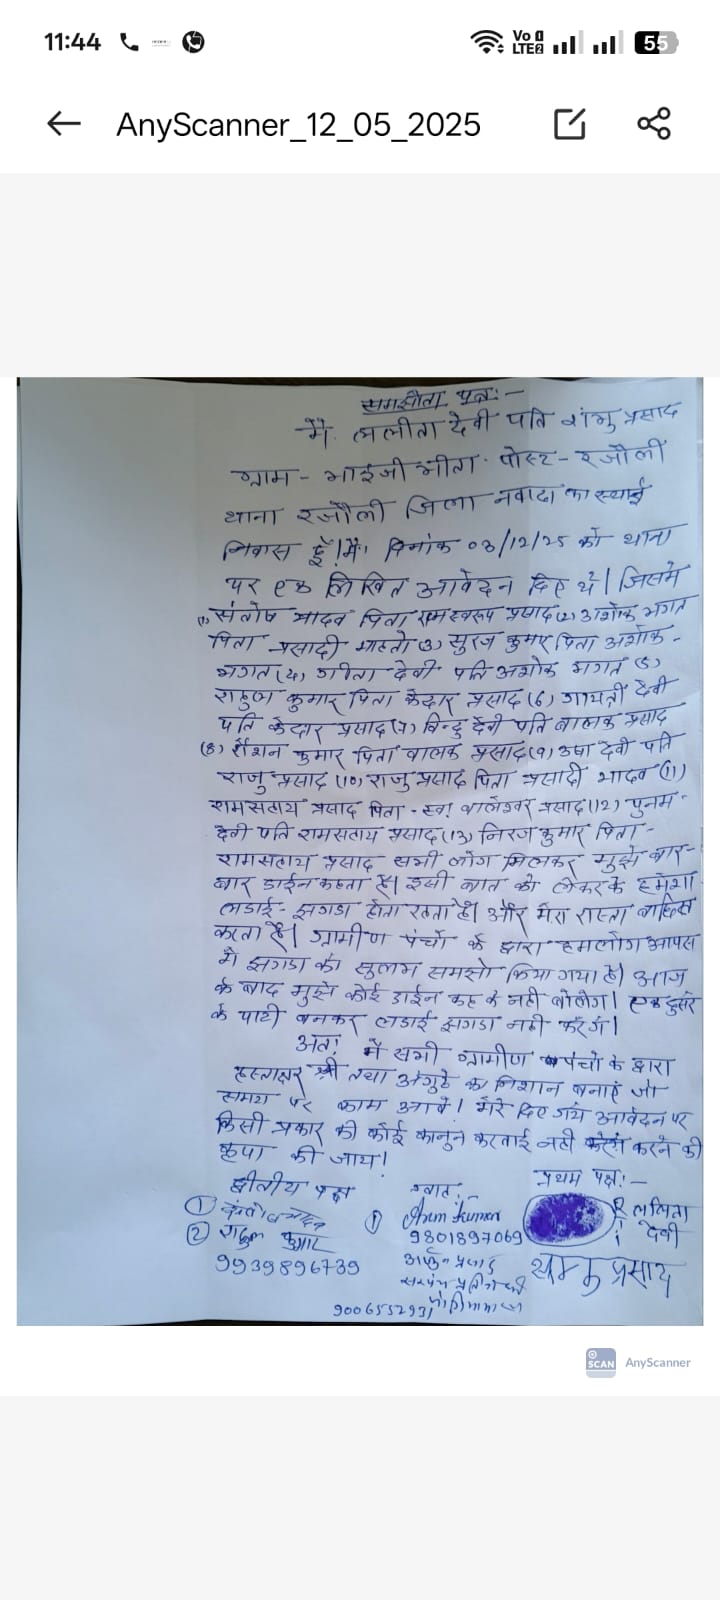 11:44
Vo LTE2
55
AnyScanner_12_05_2025
समझौता पत्र:-
मैं ललीता देवी पति शंभु प्रसाद
ग्राम - भाईजी भीता पोस्ट - रजौली
थाना रजौली जिला नवादा का स्थाई
निवास हुँ। मैं दिनांक 03/12/25 को थाना
पर एक लिखित आवेदन दिए थे। जिसमें
(1) संतोष यादव पिता रामस्वरूप प्रसाद (2) अशोक भगत
पिता प्रसादी महतो (3) सुरज कुमार पिता अशोक-
भगत (4) गीता देवी पति अशोक भगत (5)
राहुल कुमार पिता केदार प्रसाद (6) गायत्री देवी
पति केदार प्रसाद (7) बिन्दु देवी पति बालक प्रसाद
(8) रौशन कुमार पिता बालक प्रसाद (9) उषा देवी पति
राजु प्रसाद (10) राजु प्रसाद पिता प्रसादी यादव (11)
रामसहाय प्रसाद पिता - स्व० बालेश्वर प्रसाद (12) पुनम-
देवी पति रामसहाय प्रसाद (13) निरज कुमार पिता-
रामसहाय प्रसाद सभी लोग मिलकर मुझे बार-
बार डाईन कहता है। इसी बात को लेकरके हमेशा
लडाई - झगडा होता रहता है। और मेरा रास्ता बाधित
करता है। ग्रामीण पंचो के द्वारा हमलोग आपस
में झगडा को सुलभ समझो किया गया है। आज
के बाद मुझे कोई डाईन कह के नही बोलेगा। एक दुसरे
के पार्टी बनकर लडाई झगडा नही करेंगे।
अत: मैं सभी ग्रामीण पंचो के द्वारा
हस्ताक्षर तथा अंगुठे का निशान बनाए जो
समय पर काम आवे। मेरे दिए गये आवेदन पर
किसी प्रकार की कोई कानुन करवाई नही करने की
कृपा की जाय।
द्वीतीय पक्ष
गवाह:
प्रथम पक्ष:-
① संतोष यादव
② राहुल कुमार
9939896739
① Arun Kumar
9801897069
9006552931
R
ललिता
देवी
प्रसाद
SCAN AnyScanner